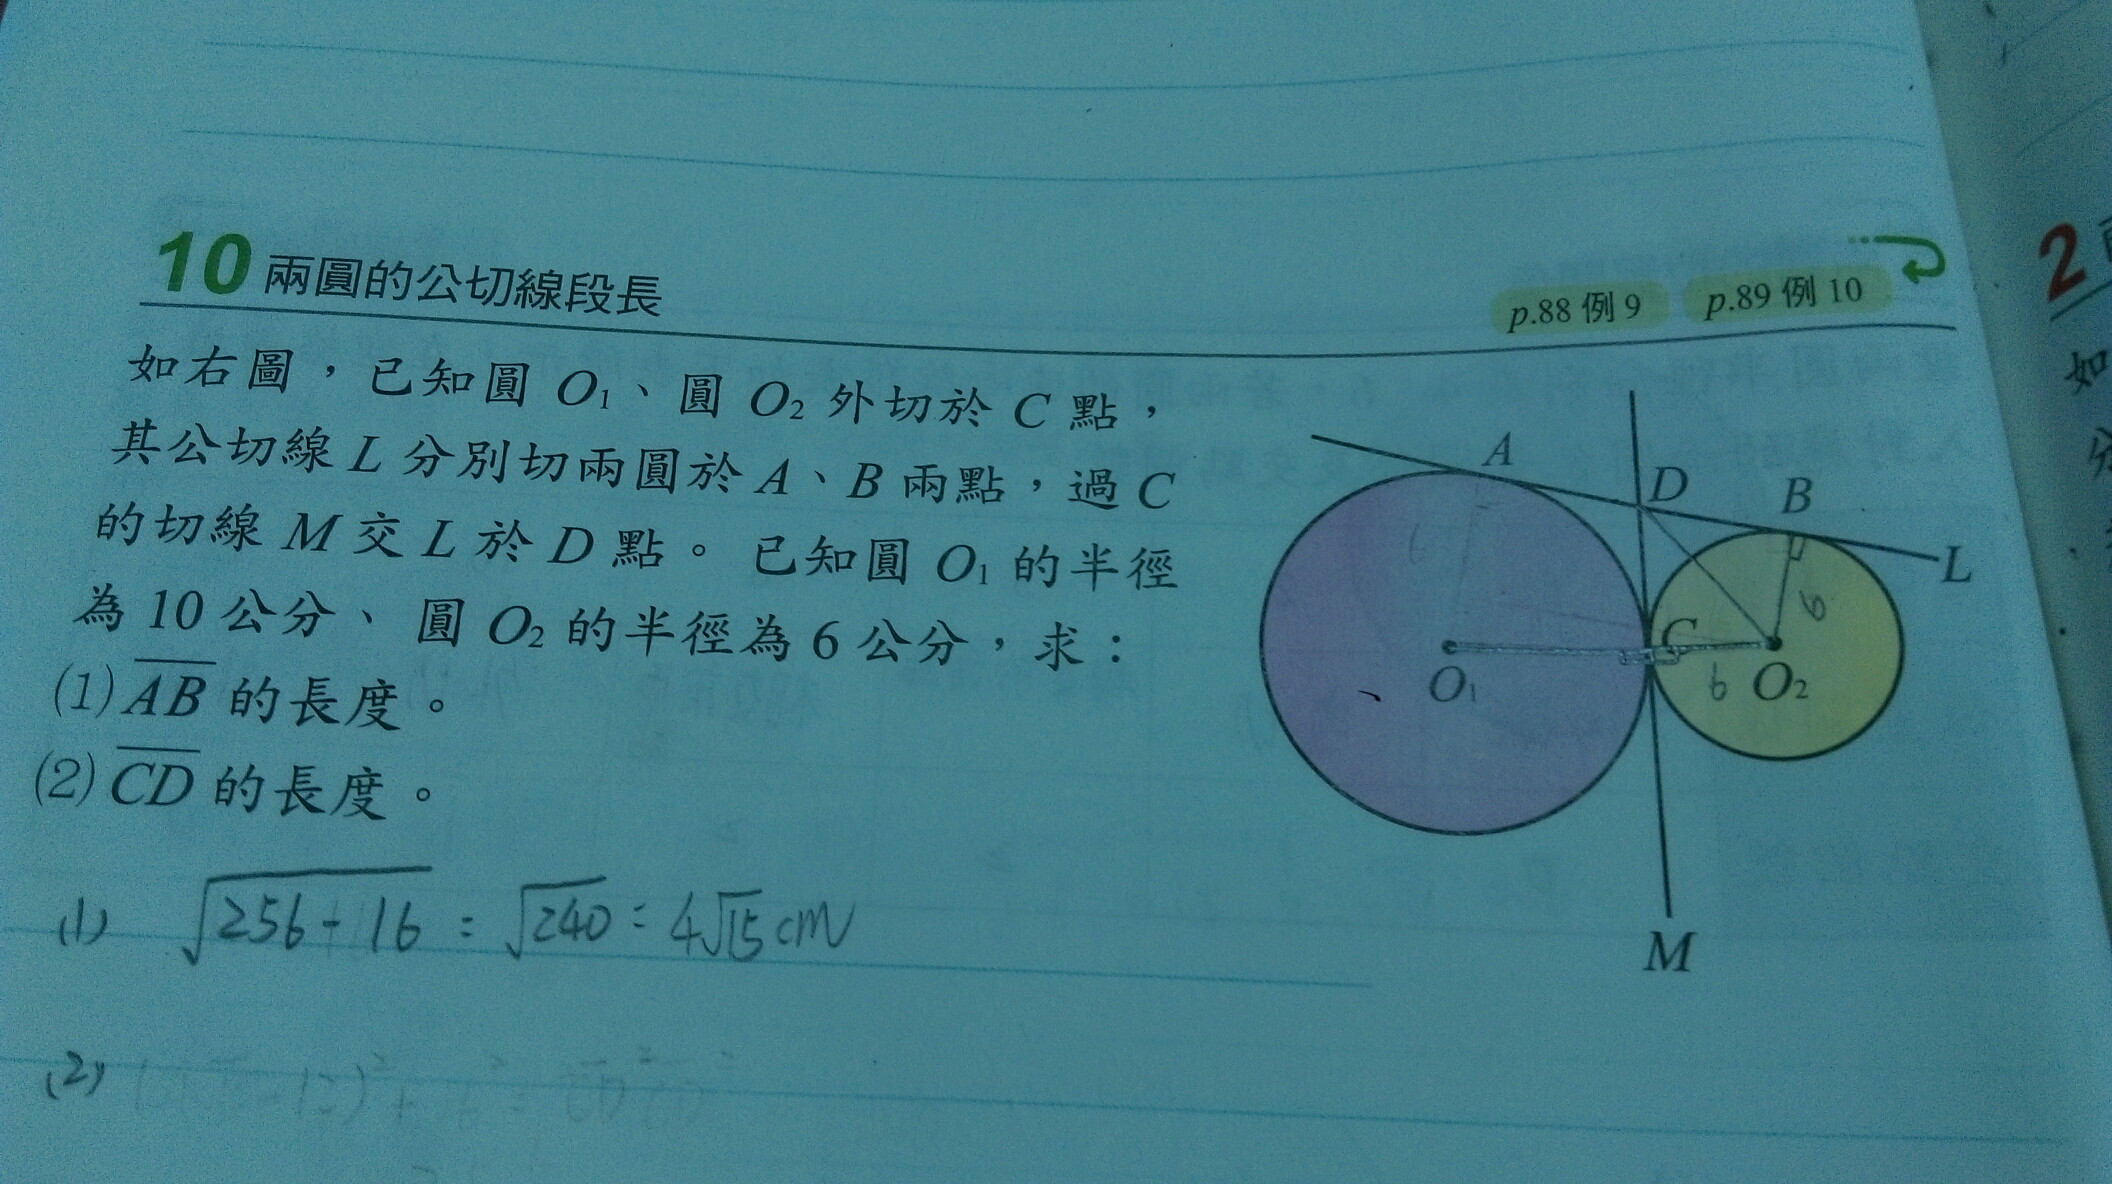 10 兩圓的公切線段長
p.88 例 9 p.89 例 10
如右圖，已知圓 O₁、圓 O₂ 外切於 C 點，
其公切線 L 分別切兩圓於 A、B 兩點，過 C
的切線 M 交 L 於 D 點。已知圓 O₁ 的半徑
為 10 公分、圓 O₂ 的半徑為 6 公分，求：
(1) AB 的長度。
(2) CD 的長度。
A
D
B
L
6
C
O₁
6
O₂
M
(1) √256-16 = √240 = 4√15 cm
(2)
2
如
分